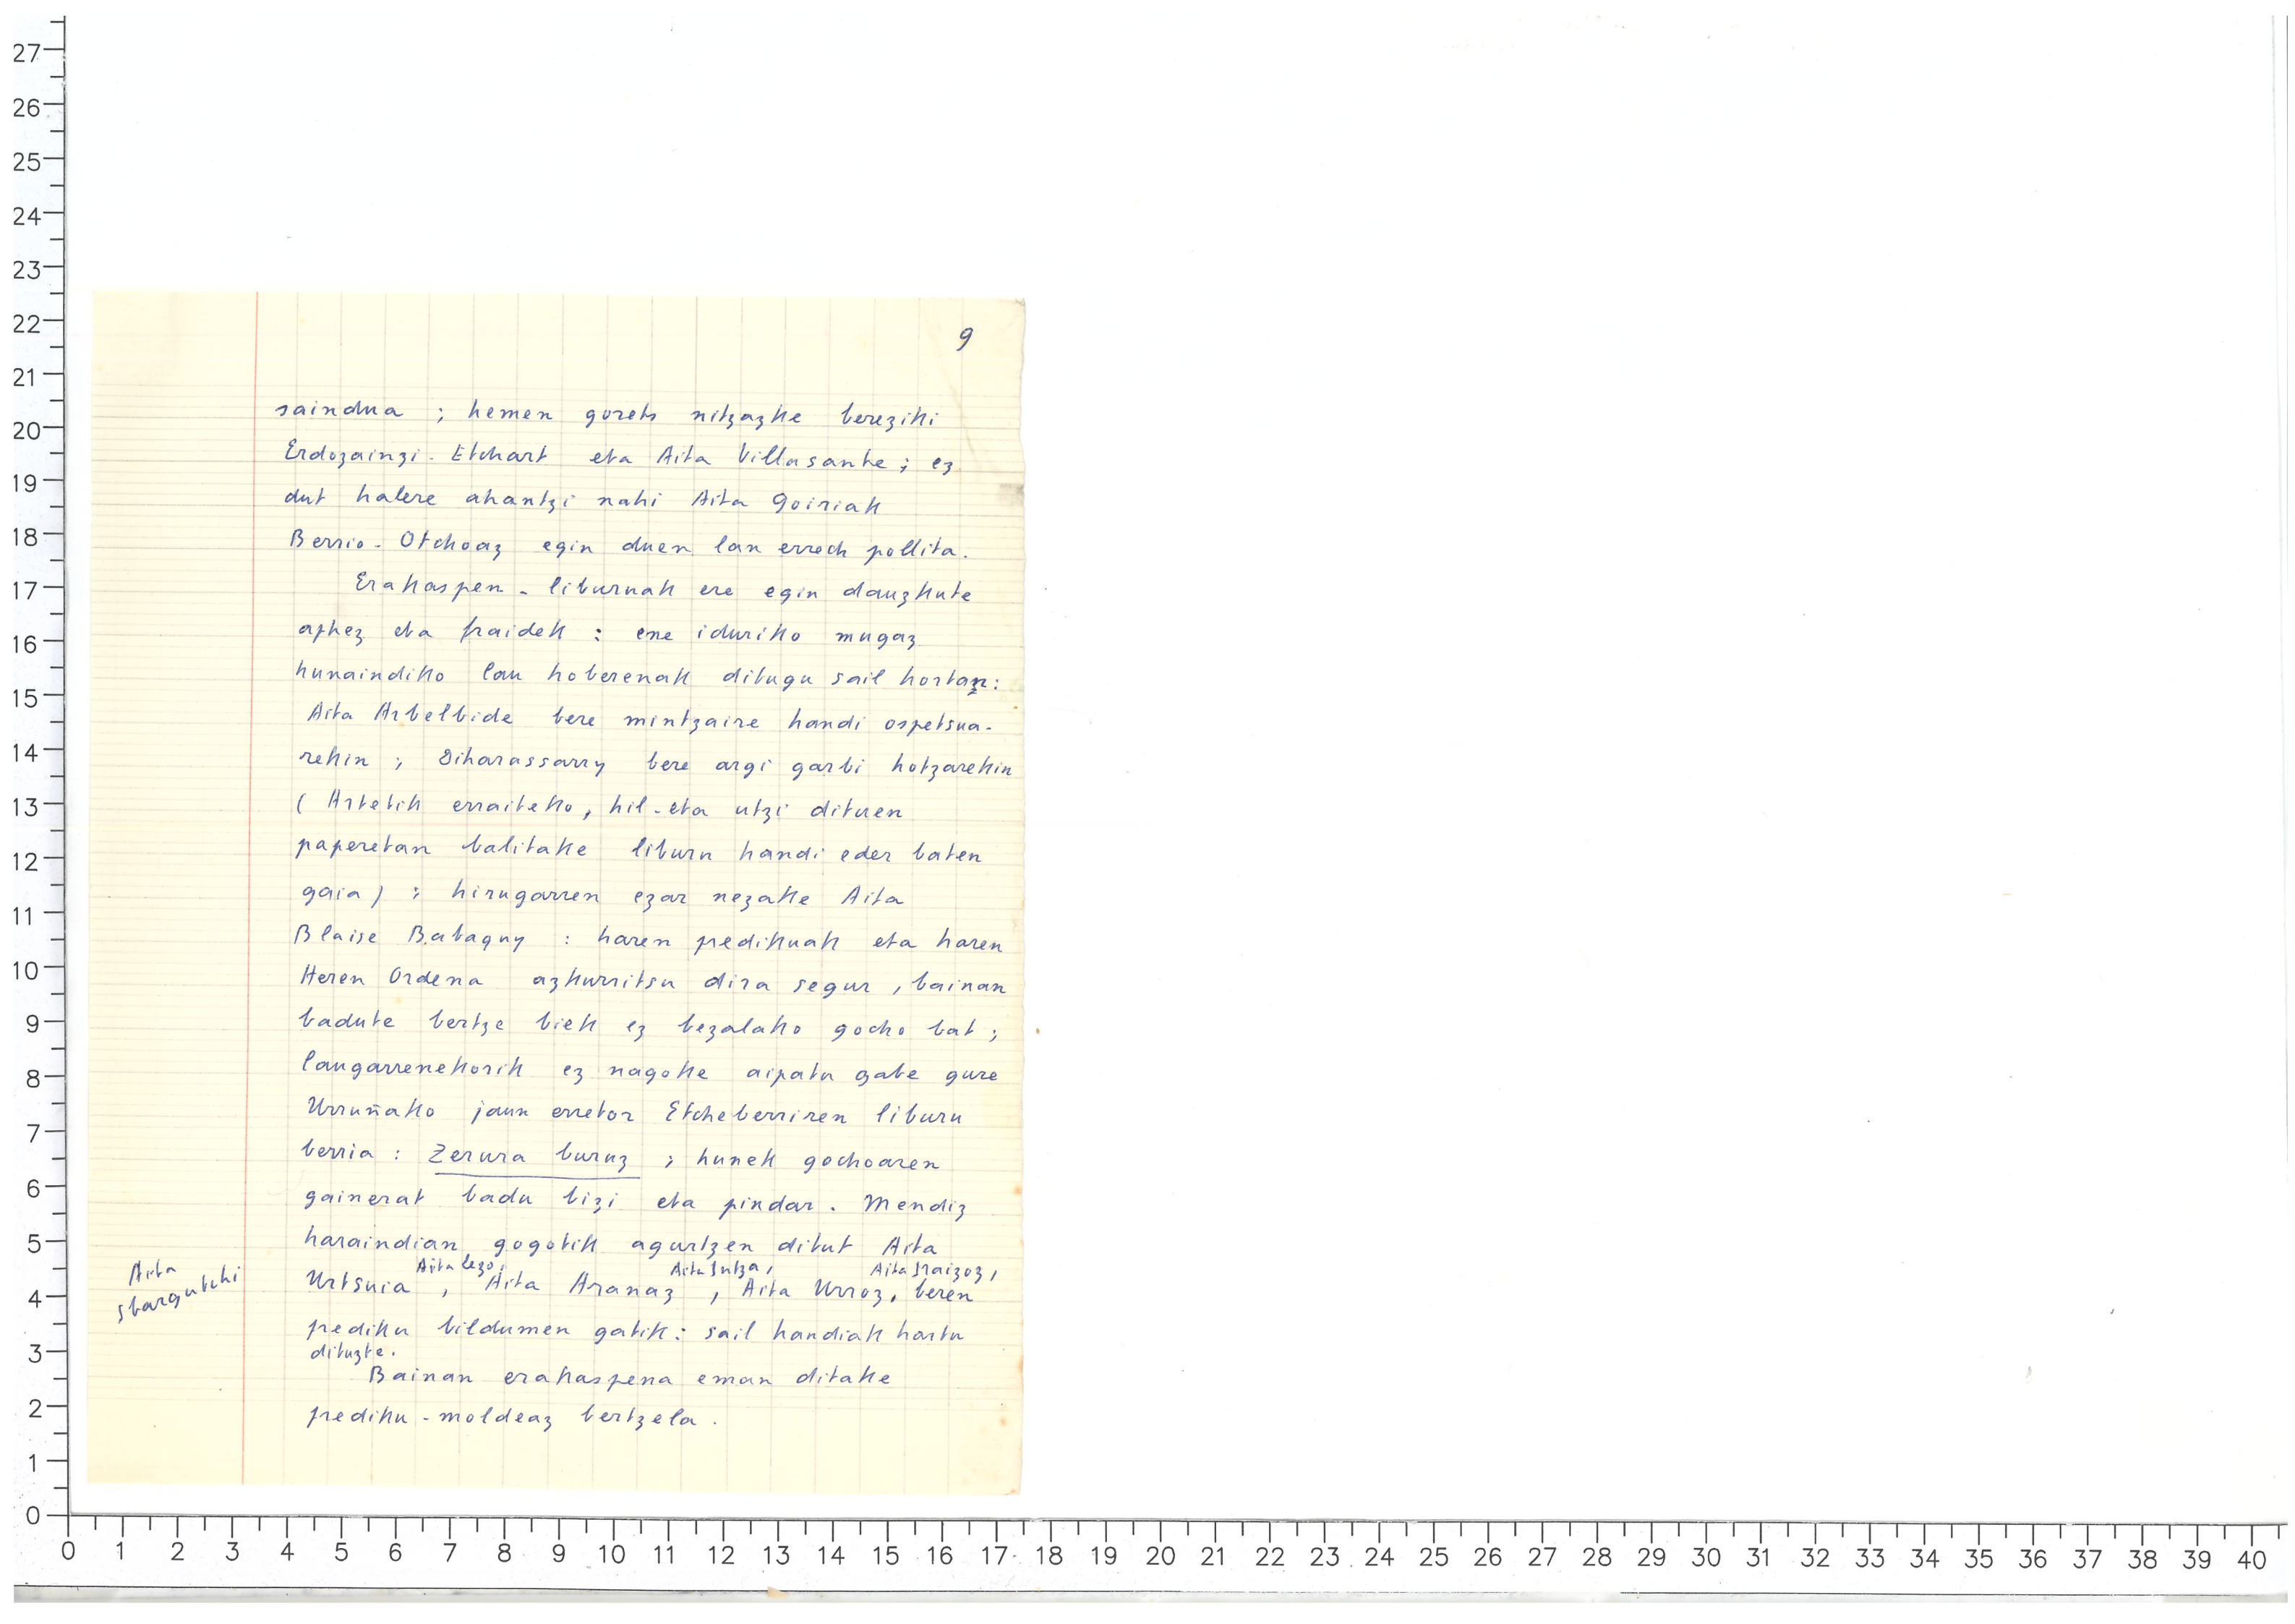 9
saindua ; hemen gorets nitzazke bereziki
Erdozainzi-Etchart eta Aita Villasante ; ez
dut halere ahantzi nahi Aita Goiriak
Berrio-Otchoaz egin duen lan errech pollita.
Erakaspen-liburuak ere egin dauzkute
aphez eta fraidek : ene iduriko mugaz
hunaindiko lan hoberenak ditugu sail hortan:
Aita Arbelbide bere mintzaire handi ospetsua-
rekin ; Diharassarry bere argi garbi hotzarekin
( Artetik erraiteko, hil-eta utzi dituen
paperetan balitake liburu handi eder baten
gaia ) ; hirugarren ezar nezake Aita
Blaise Batagny : haren predikuak eta haren
Heren Ordena azkurritsu dira segur , bainan
badute bertze biek ez bezalako gocho bat ;
laugarrenekorik ez nagoke aipatu gabe gure
Urruñako jaun erretor Etcheberriren liburu
berria : Zerura buruz ; hunek gochoaren
gainerat badu bizi eta pindar . Mendiz
haraindian gogotik agurtzen ditut Aita
Aita Lezo, Aita Intza, Aita Iraizoz,
Urtsuia , Aita Aranaz , Aita Urroz, beren
Aita
prediku bildumen gatik : sail handiak hartu
dituzte.
Bainan erakaspena eman ditake
prediku-moldeaz bertzela .